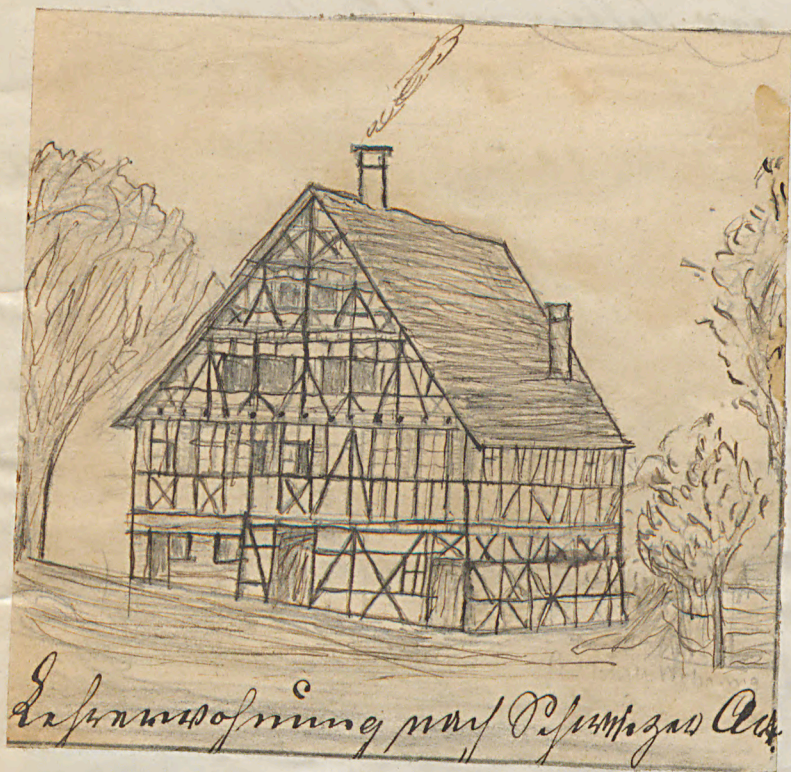 Lehrerwohnung nach Schweizer Art.